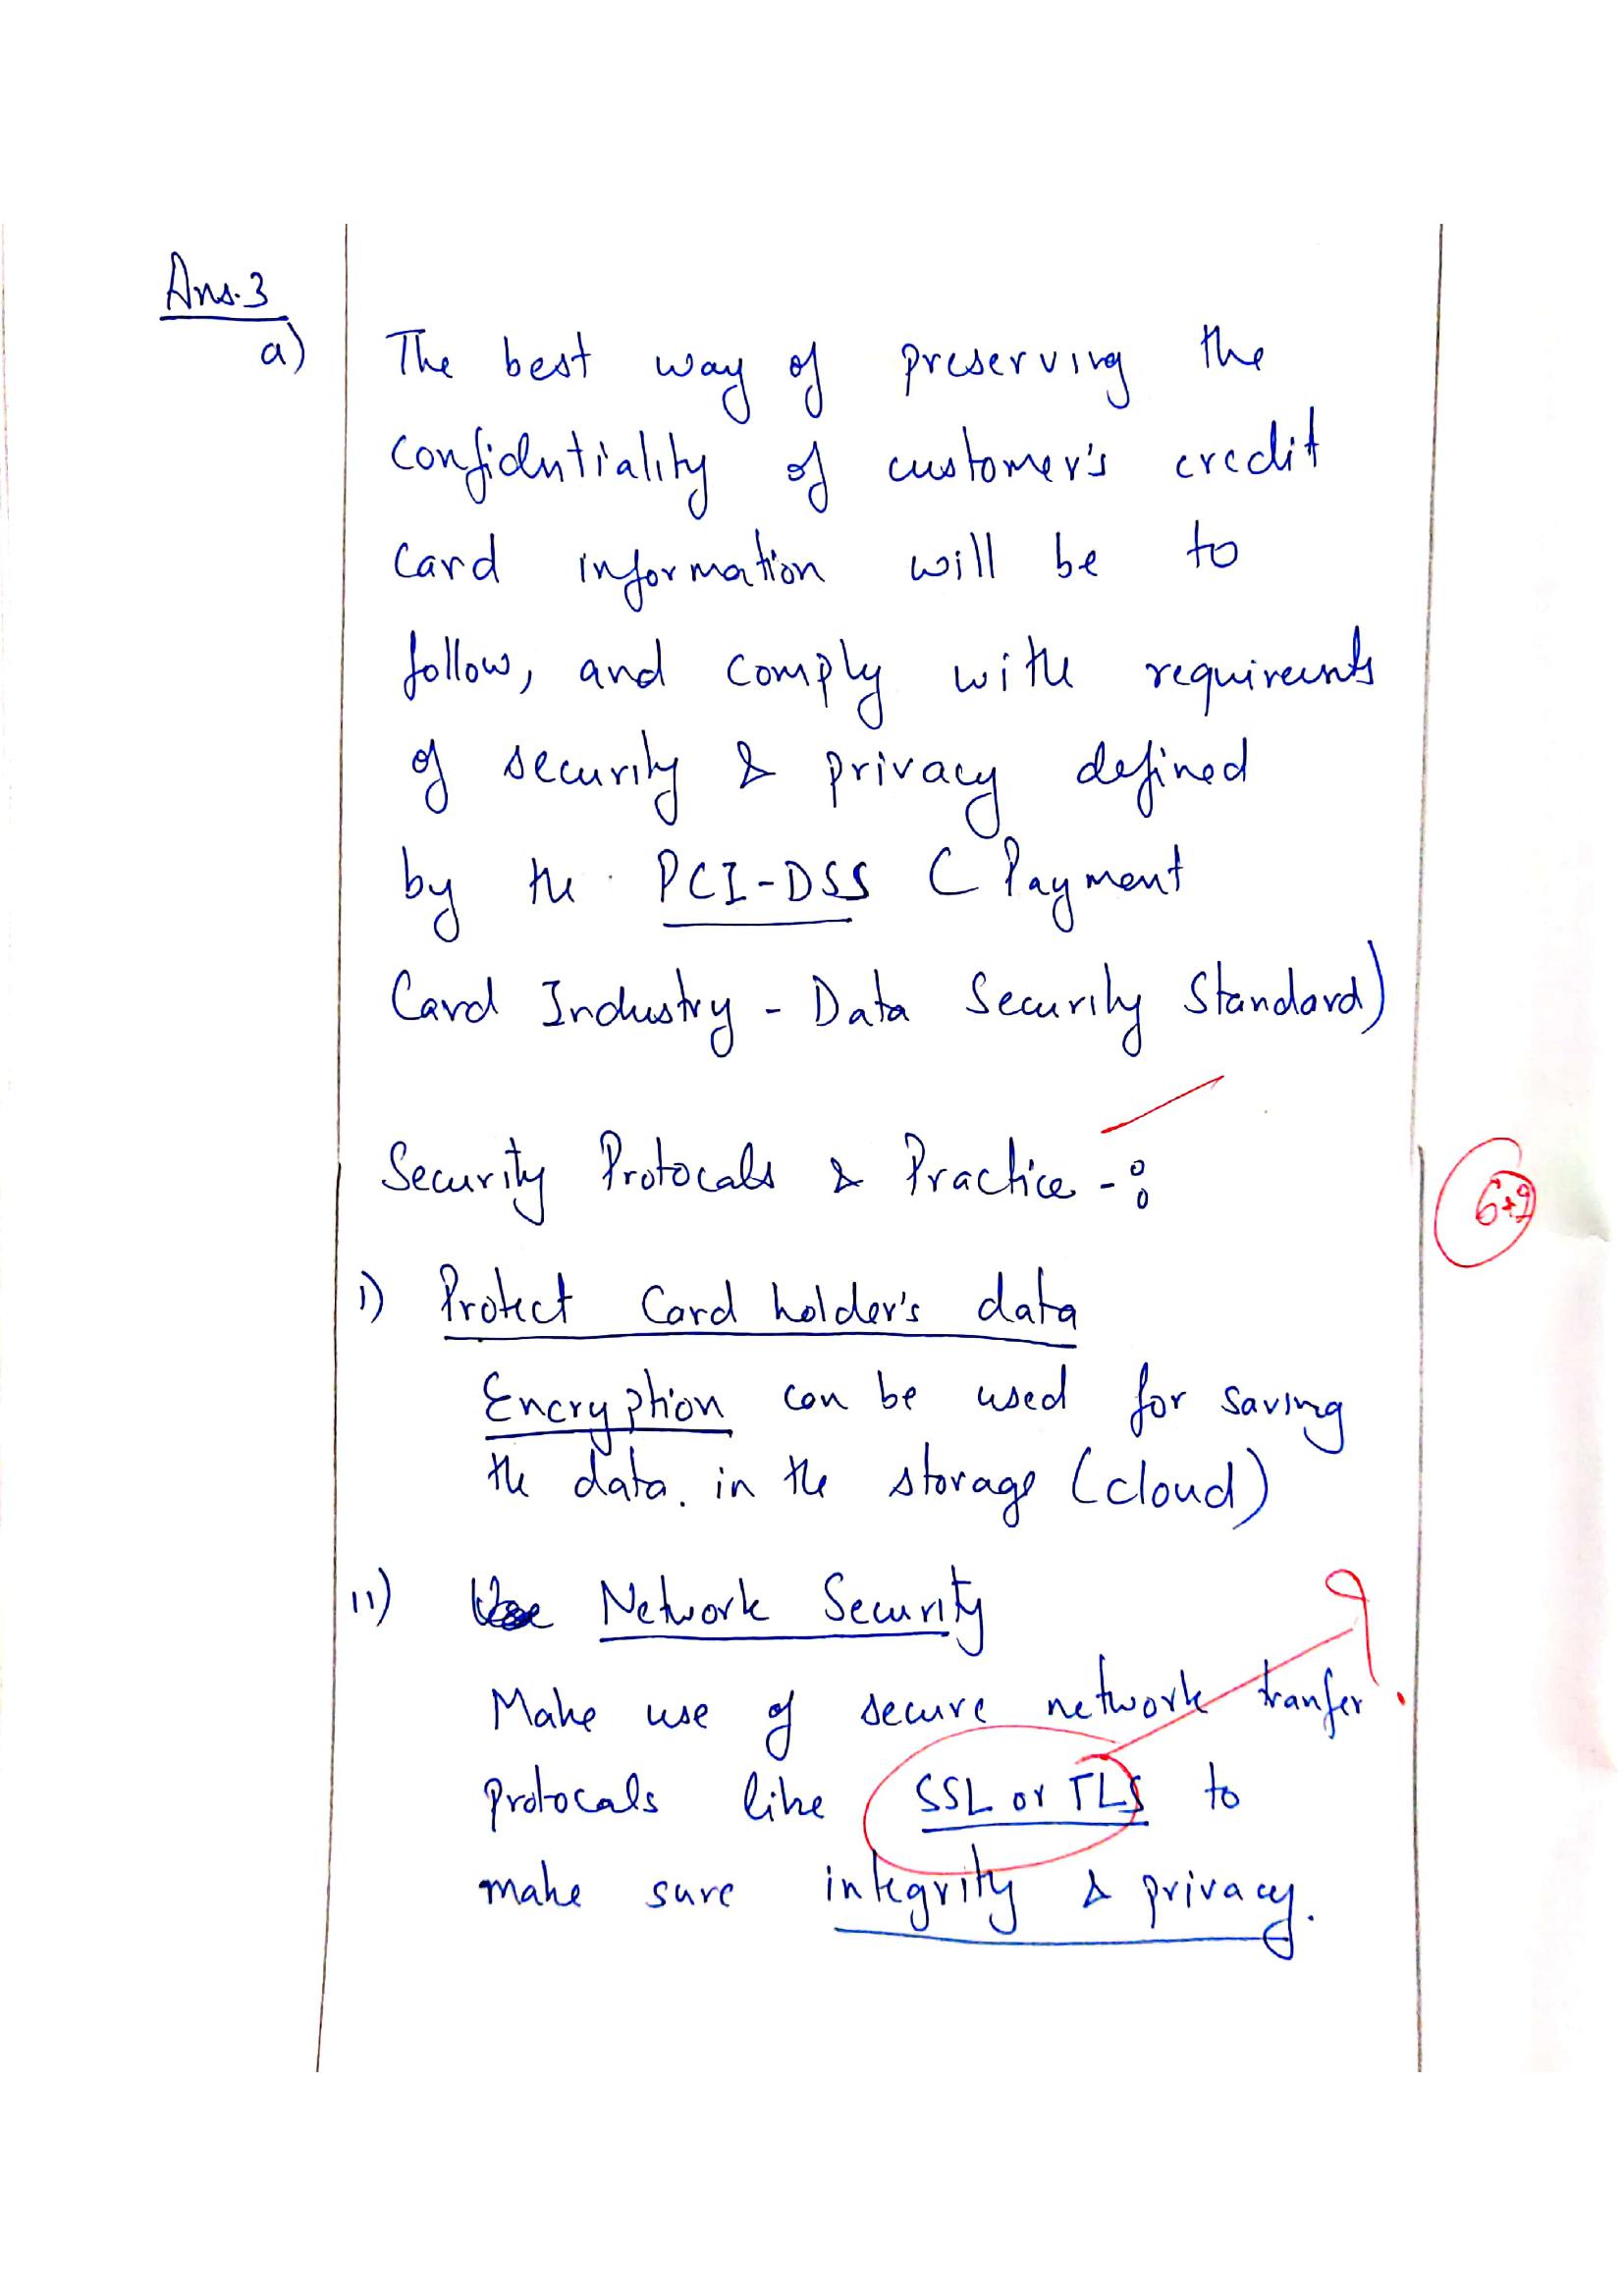 Ans.3
a) The best way of preserving the
confidentiality of customer's credit
card information will be to
follow, and comply with requirements
of security & privacy defined
by the PCI-DSS (Payment
Card Industry - Data Security Standard)
Security Protocals & Practice -:
i) Protect Card holder's data
Encryption can be used for saving
the data. in the storage (cloud)
ii) Network Security
Make use of secure network tranfer
protocals like SSL or TLS to
make sure integrity & privacy.